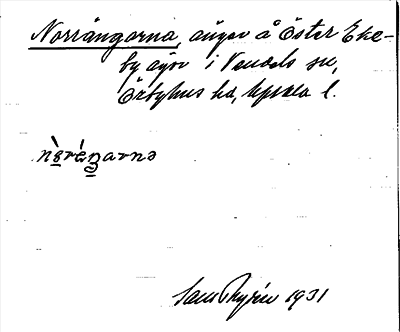 Norrängarna, ängar å Öster Eke-
by ägor i Vendels sn,
Örbyhus hd, Upsala l.
nòrę́ŋarnə
1931